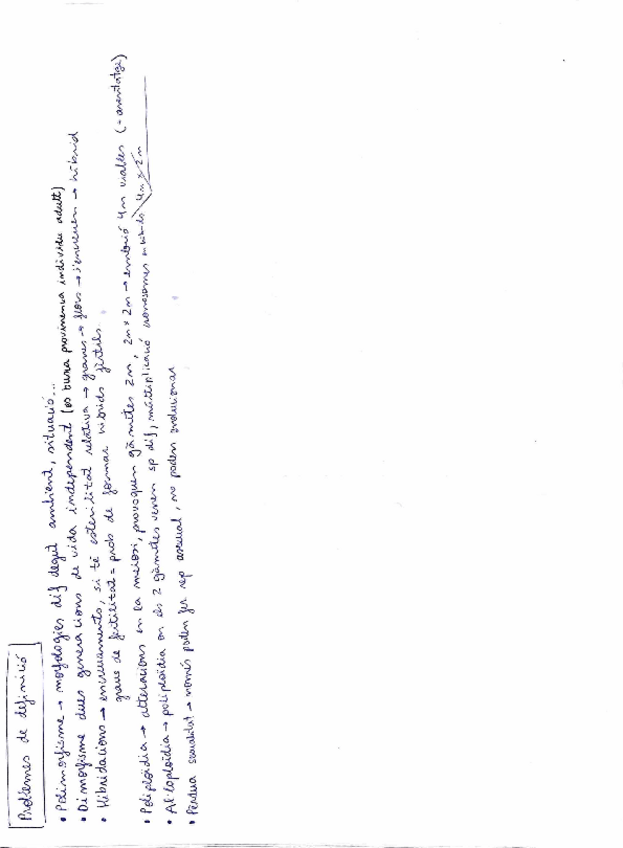 Problemes de definició
• Polimorfisme → morfologies dif degut ambient, situació...
• Dimorfisme dues generacions de vida independent (es busca provinença individu adult)
• Hibridacions → encreuaments, si té esterilitat relativa → granes → flors → s'encreuen → híbrid
graus de fertilitat = prob de formar híbrids fèrtils.
• Poliploïdia → alteracions en la meiosi, provoquen gàmetes 2n, 2n x 2n → embrió 4n viables (- avantatge)
• Al·loploïdia → poliploïdia on els 2 gàmetes venen sp dif, multiplicació cromosomes 4n x 2n
• Pèrdua sexualitat → només poden fer rep asexual, no poden evolucionar